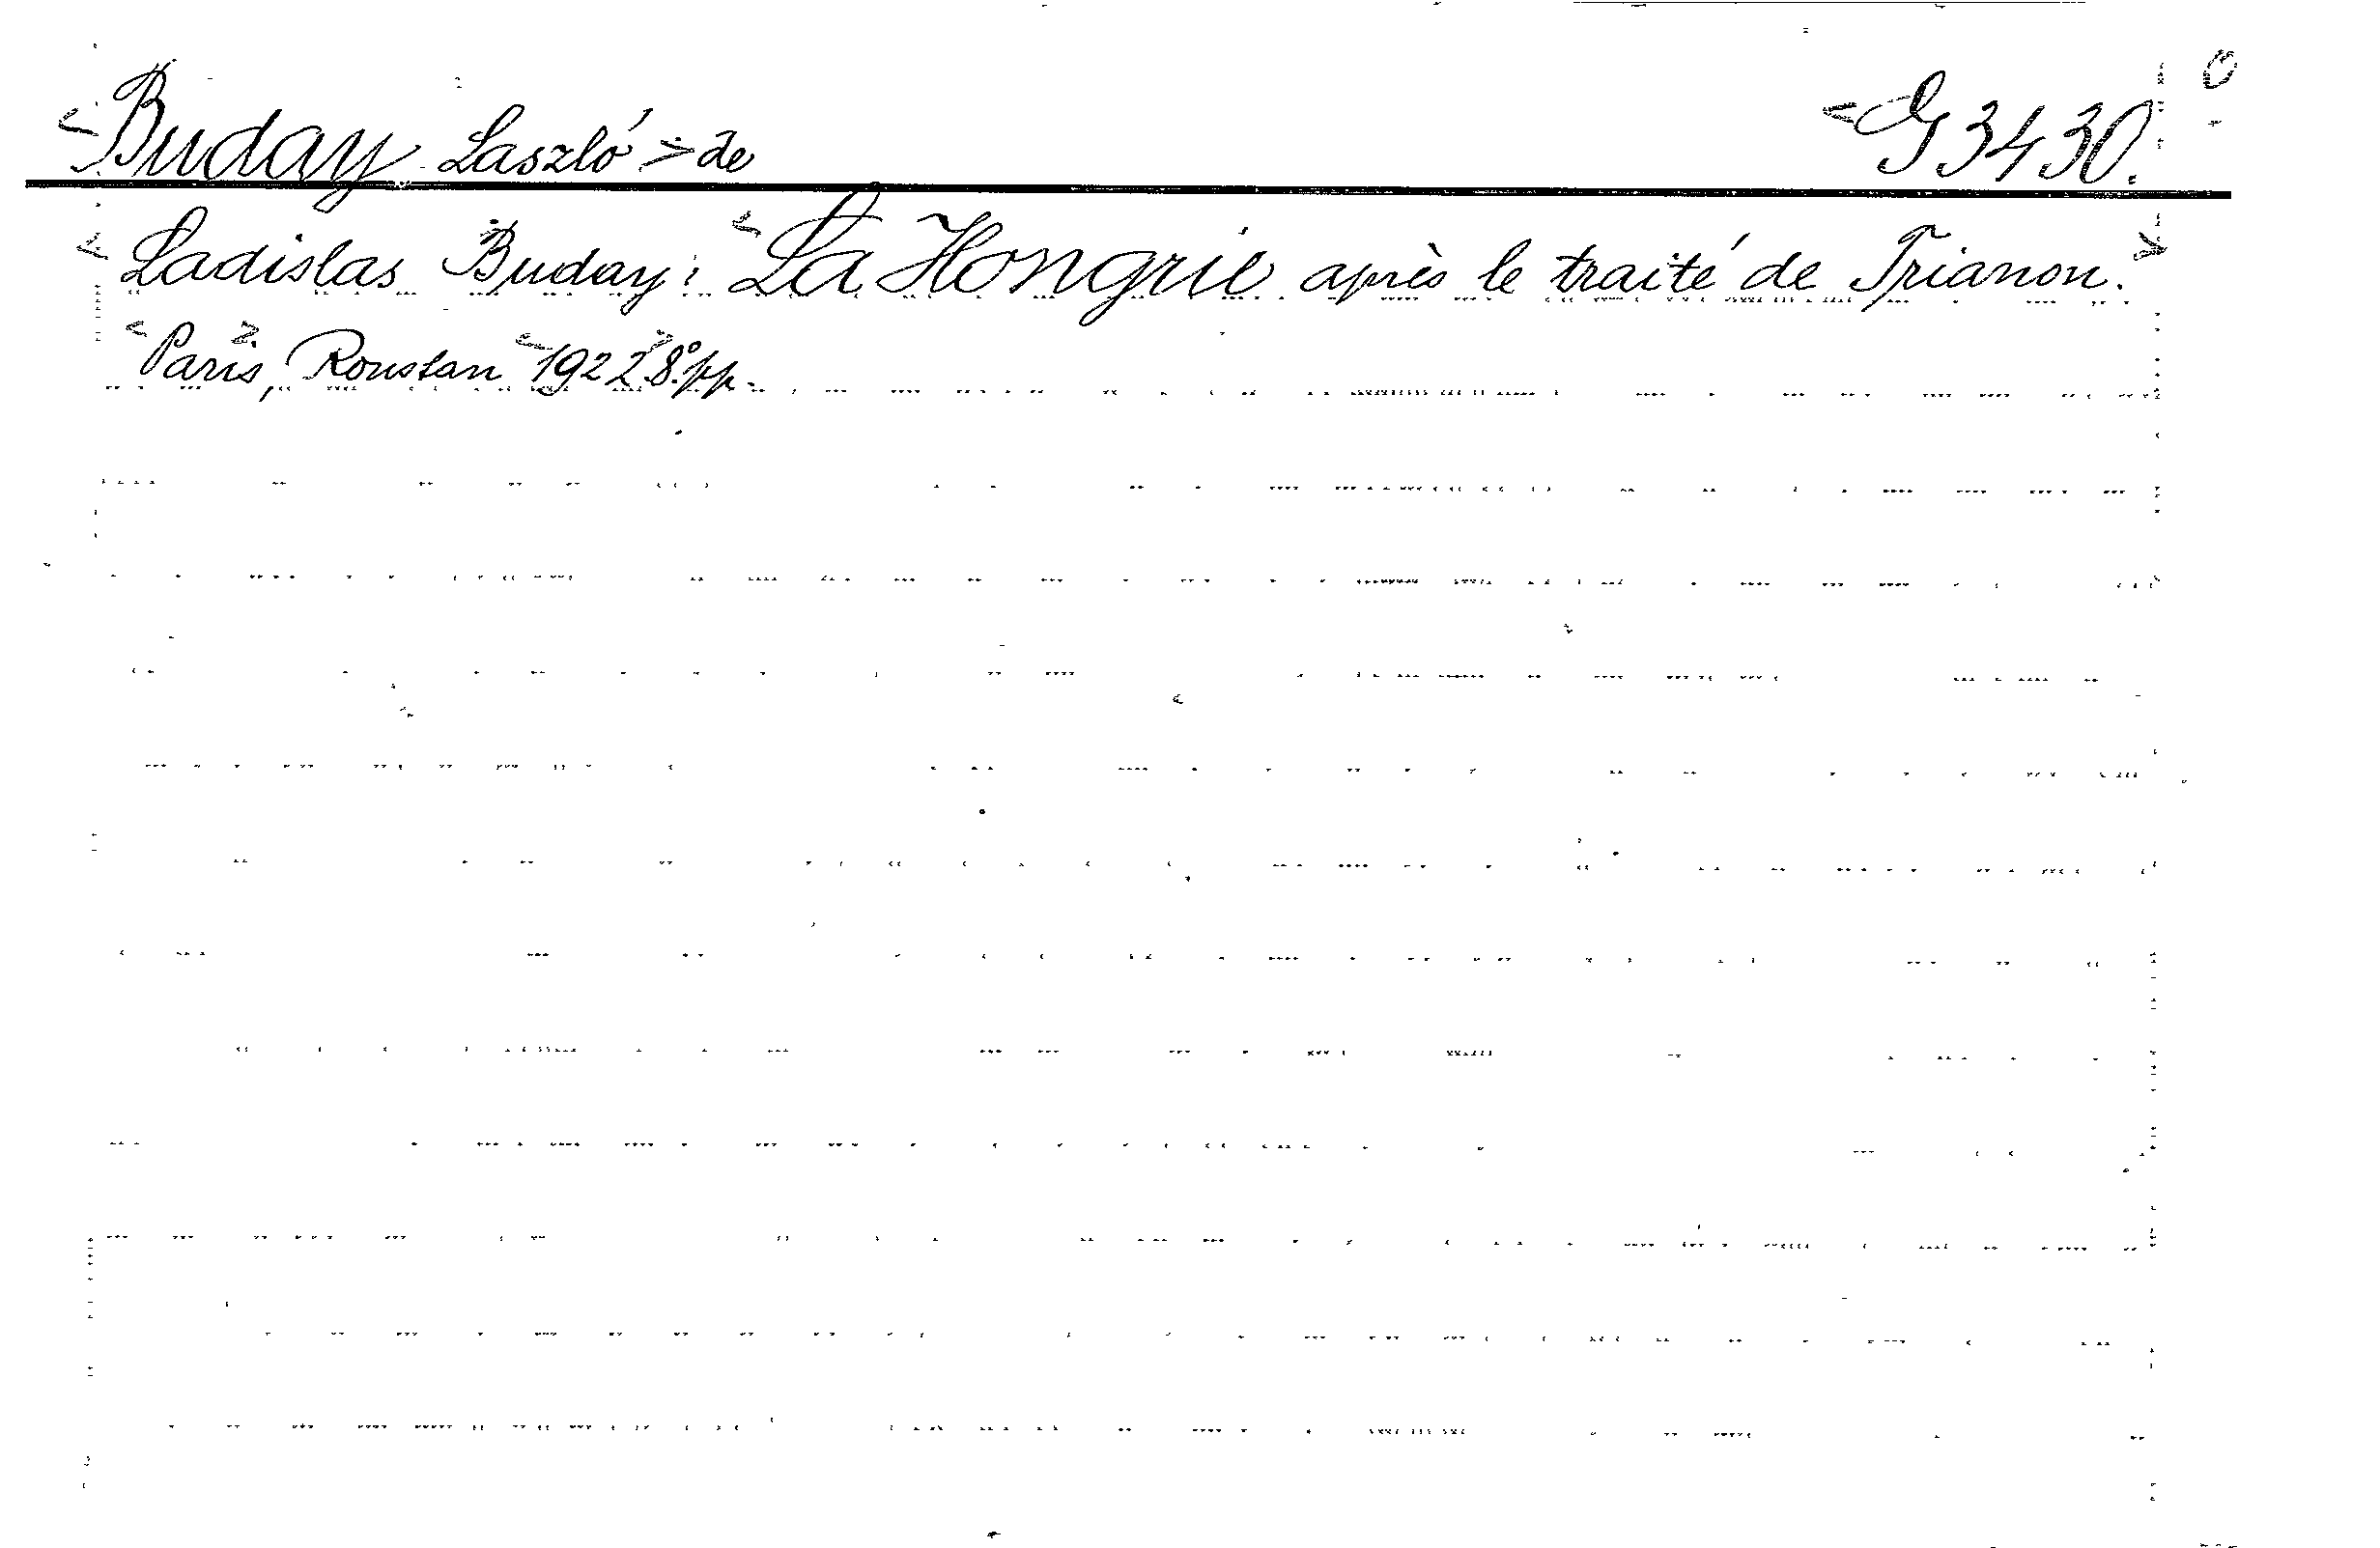 <Buday László> de <G 3430.
<Ladislas Buday: <La Hongrie après le traité de Trianon.>
<Paris>, Roustan <1922>. 8°. pp.